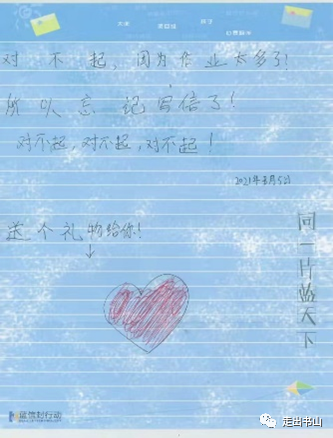 对不起,因为作业太多了!
所以忘记写信了!
对不起,对不起,对不起!
2021年3月5日
送个礼物给你!
同一片蓝天下
蓝信封行动
走出书山